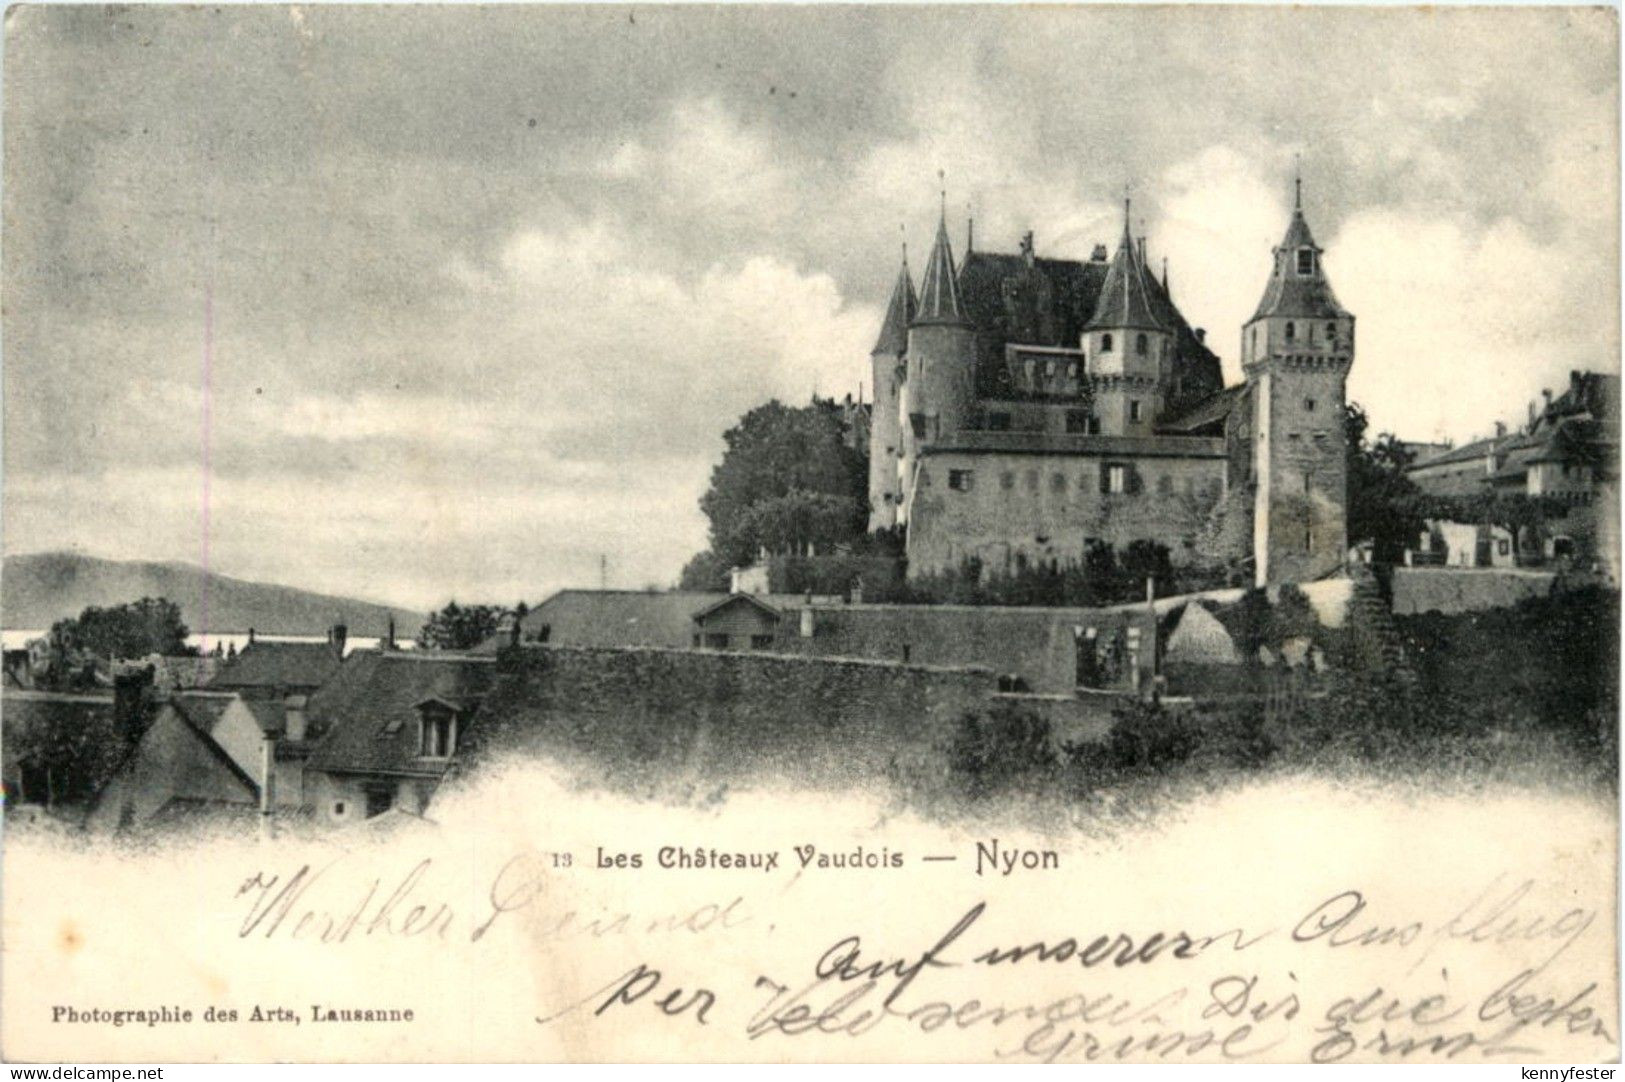 13 Les Châteaux Vaudois — Nyon
Werther Freund!
Auf unserem Ausflug
per Velo sendet Dir die besten
Grüsse Ernst
Photographie des Arts, Lausanne
delcampe.net
kennyfester